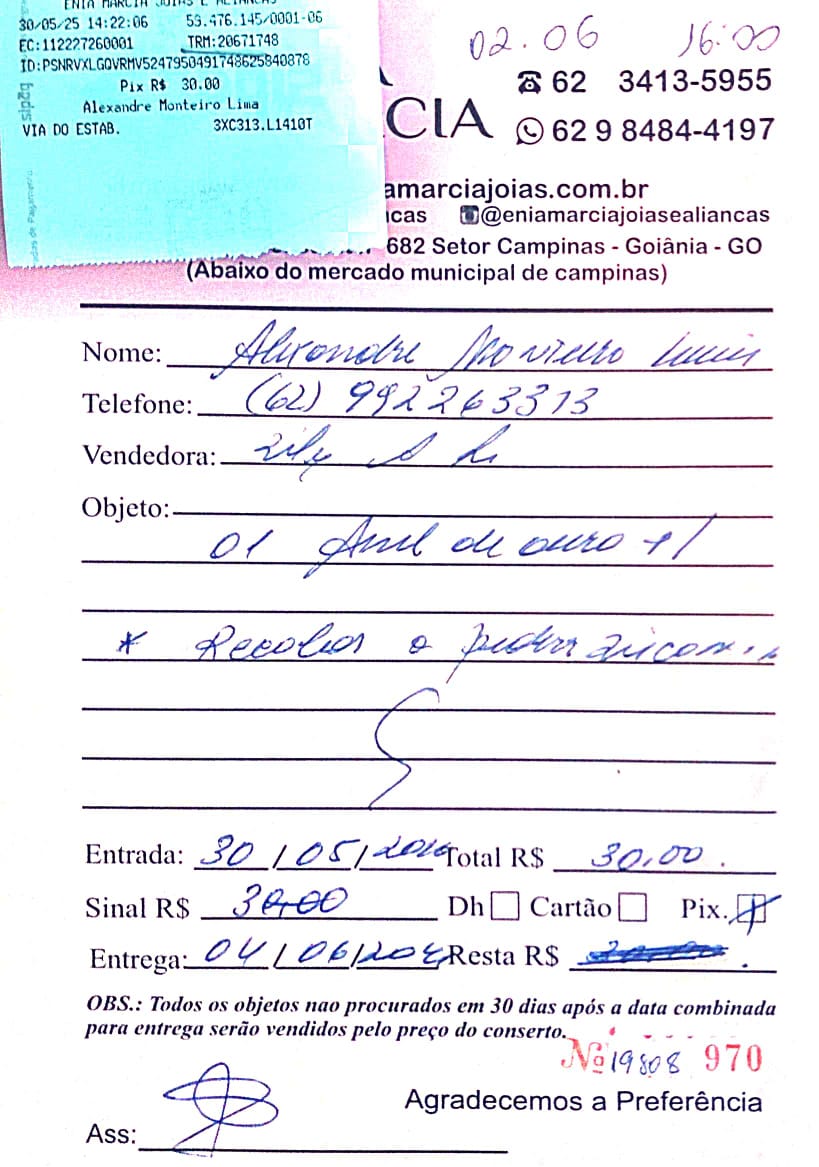 ENIA MARCIA JOIAS E ALIANCAS
30/05/25 14:22:06 53.476.145/0001-06
EC:112227260001 TRM:20671748
ID:PSNRVXLGQVRMV5247950491748625840878
Pix R$ 30.00
Alexandre Monteiro Lima
VIA DO ESTAB. 3XC313.L1410T
02.06 16:00
62 3413-5955
CIA 62 9 8484-4197
amarciajoias.com.br
ncas @eniamarciajoiasealiancas
682 Setor Campinas - Goiânia - GO
(Abaixo do mercado municipal de campinas)
Nome: Alexandre Monteiro Lima
Telefone: (62) 992263313
Vendedora:
Objeto:
01 Anel de ouro
* Recolar a pedra
Entrada: 30/05/ Total R$ 30,00.
Sinal R$ 30,00 Dh Cartão Pix.
Entrega: 04/06/ Resta R$
OBS.: Todos os objetos nao procurados em 30 dias após a data combinada
para entrega serão vendidos pelo preço do conserto.
Nº 19808 970
Agradecemos a Preferência
Ass: